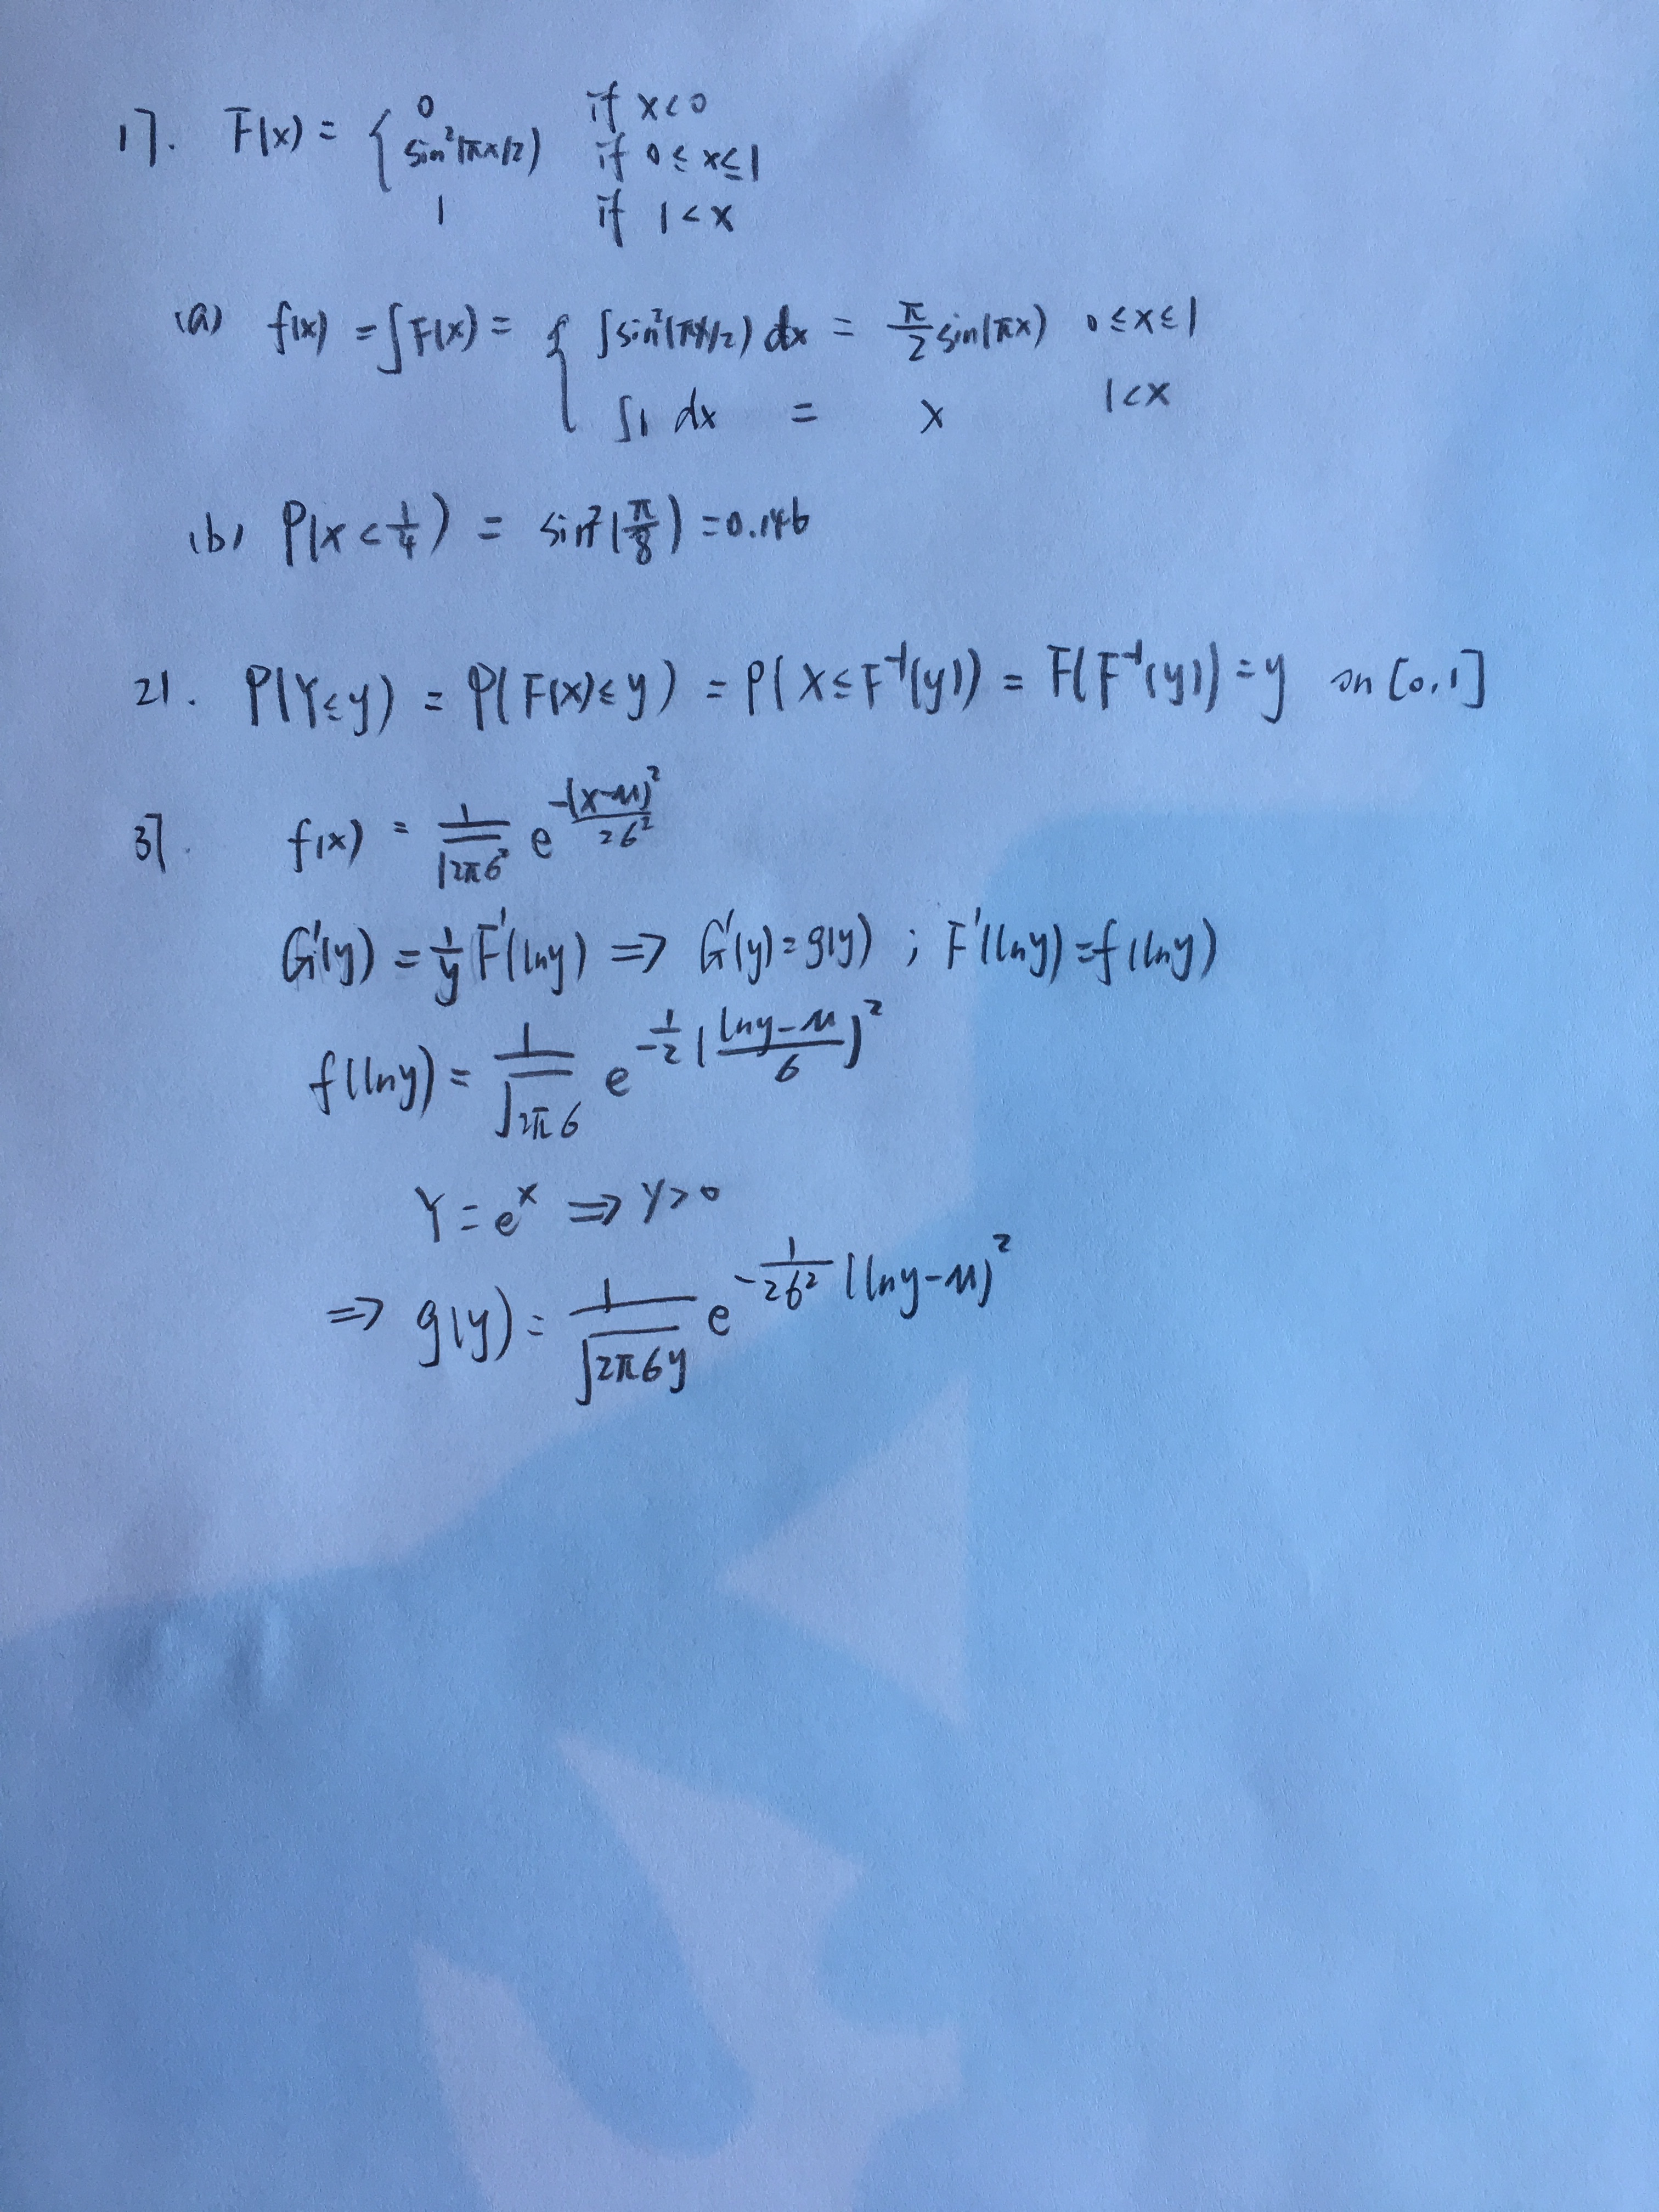 17. F(x) = { 0 if x<0
sin²(πx/2) if 0≤x≤1
1 if 1<x
(a) f(x) = ∫F(x) = { ∫sin²(πx/2) dx = π/2 sin(πx) 0≤x≤1
∫1 dx = x 1<x
(b) P(x<1/4) = sin²(π/8) = 0.146
21. P(Y≤y) = P(F(x)≤y) = P(X≤F⁻¹(y)) = F(F⁻¹(y)) = y on [0,1]
37. f(x) = 1/√(2πσ²) e^(-(x-μ)²/2σ²)
G'(y) = 1/y F'(lny) ⇒ G'(y)=g(y) ; F'(lny)=f(lny)
f(lny) = 1/√(2πσ) e^(-1/2((lny-μ)/σ)²)
Y=e^x ⇒ Y>0
⇒ g(y) = 1/√(2πσy) e^(-1/2σ² (lny-μ)²)